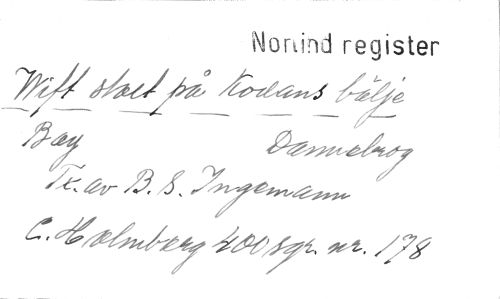 Norlind register
Wift stolt på Kodans bölje
Bay Dannebrog
Tk. av B. S. Ingemann
C. Holmberg 400 sgr. nr. 178